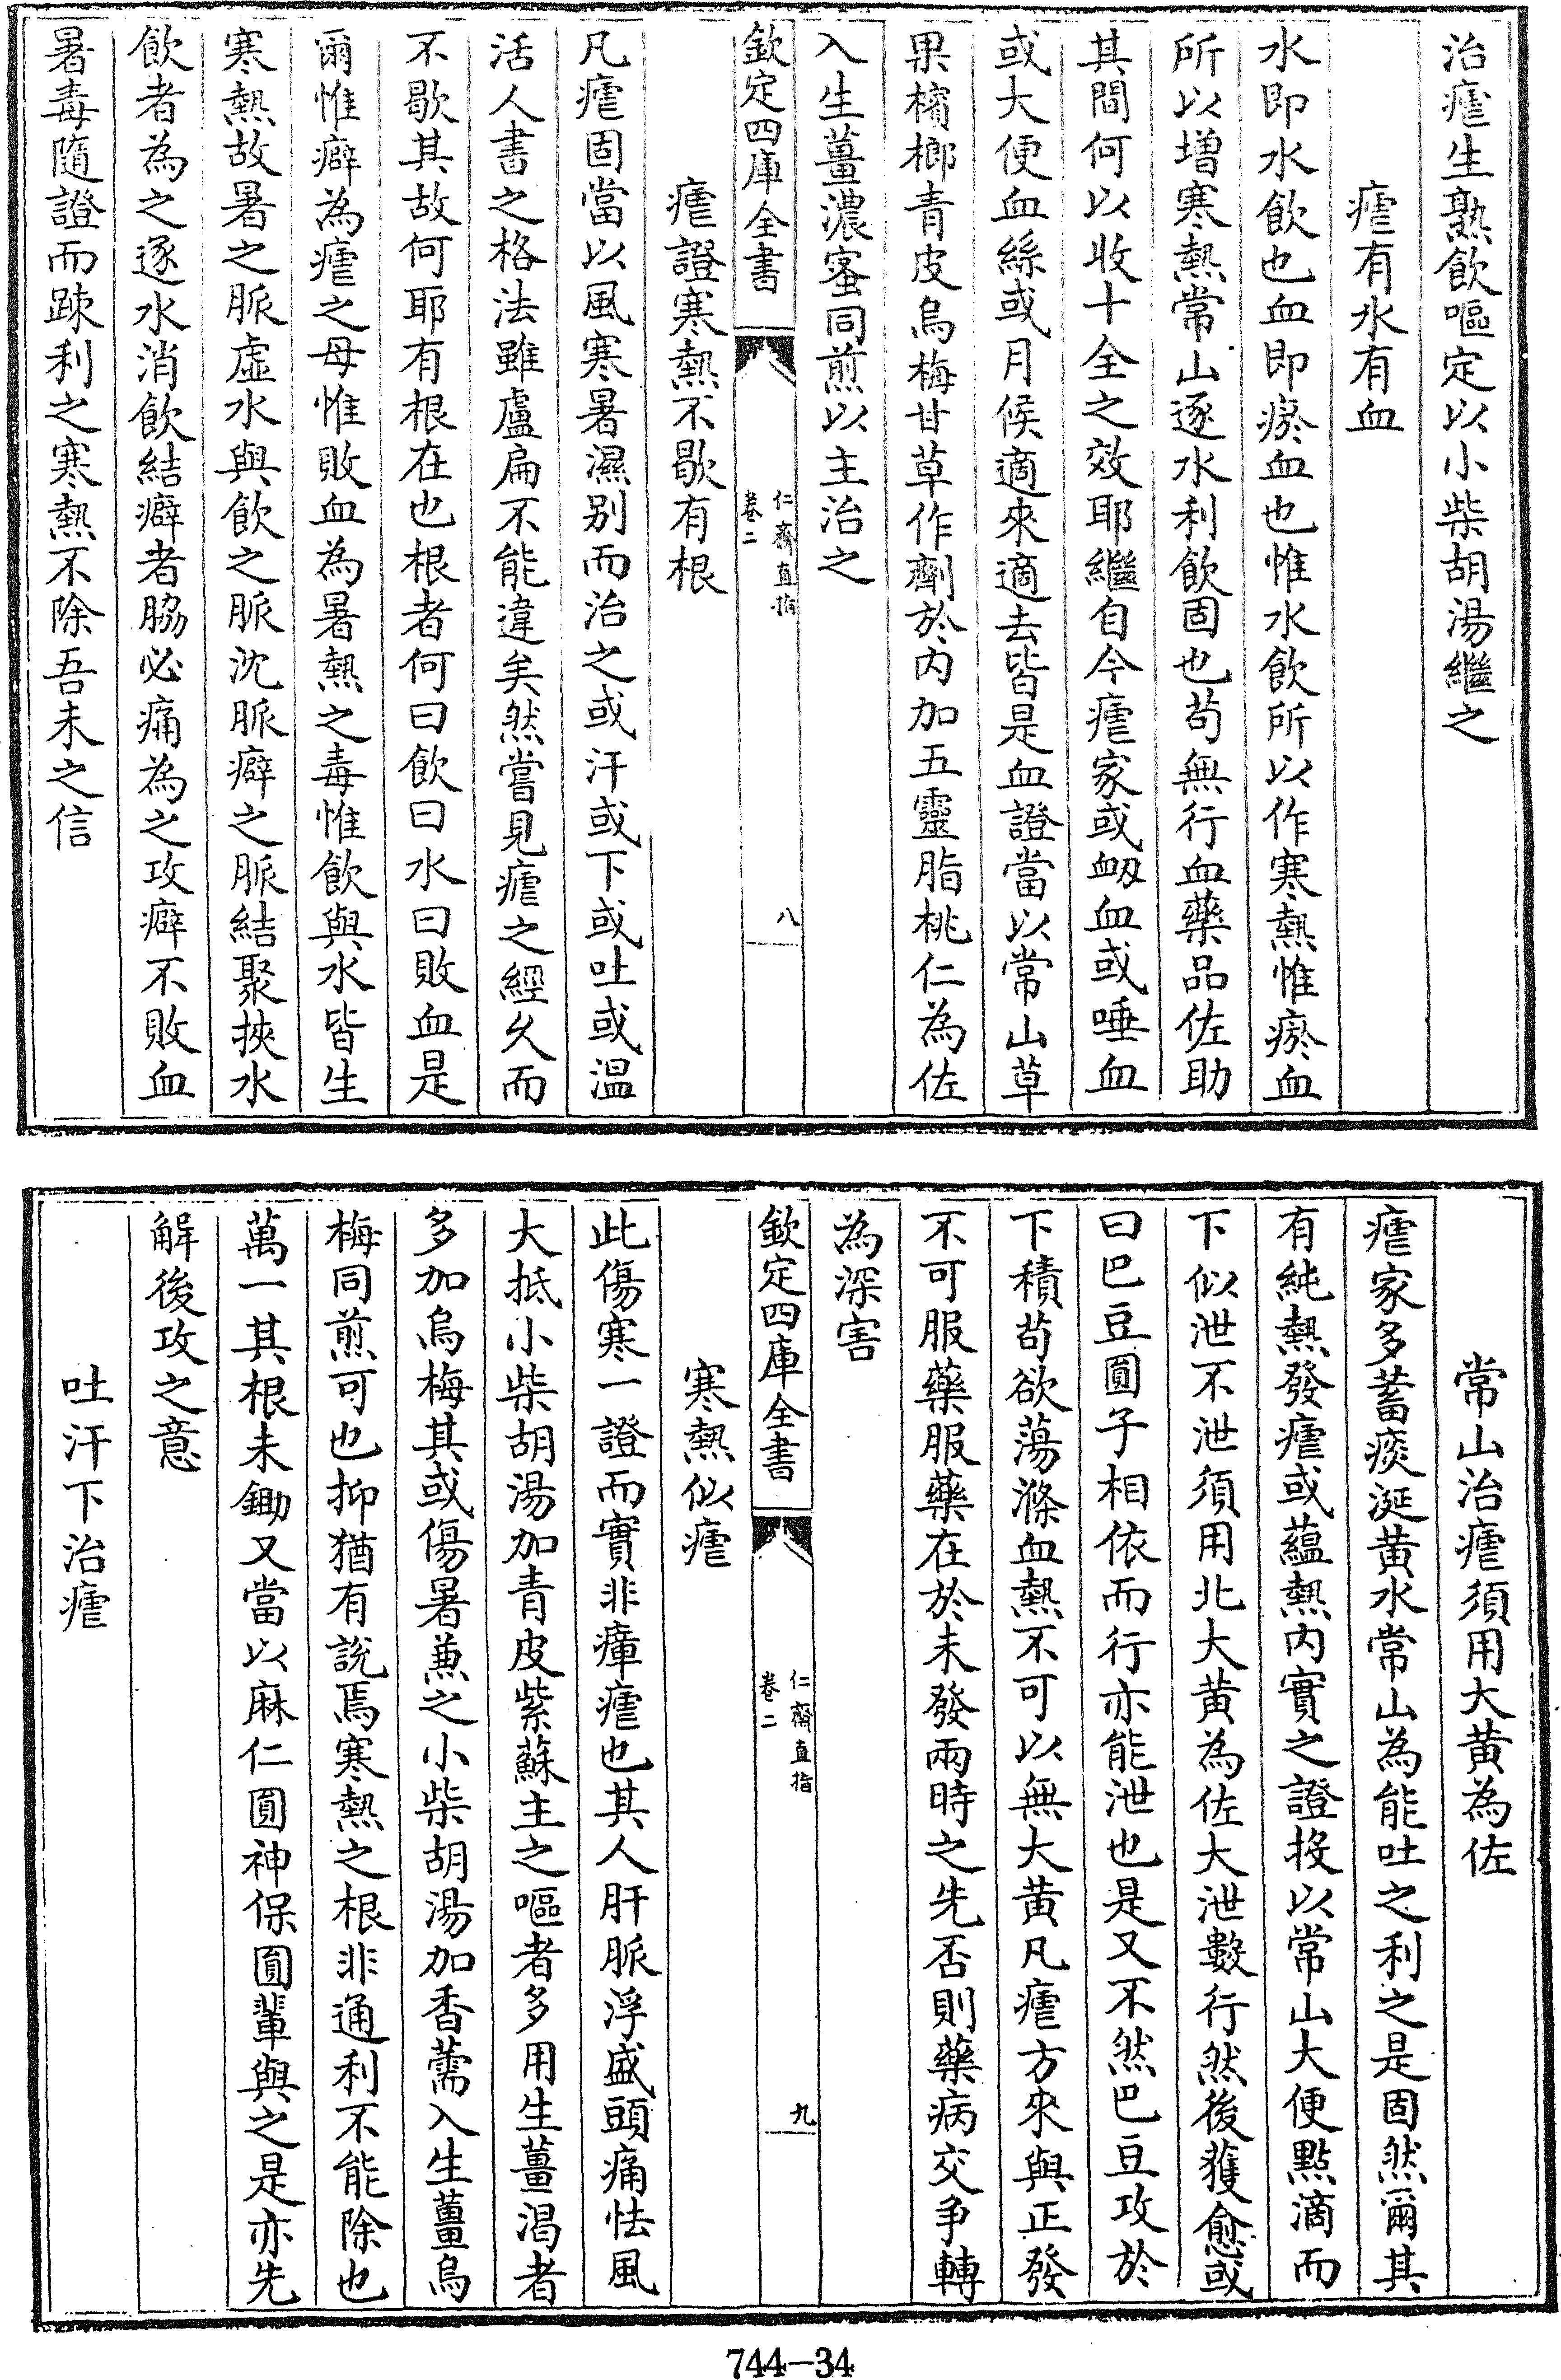 治瘧生熟飲嘔定以小柴胡湯繼之
瘧有水有血
水即水飲也血即瘀血也惟水飲所以作寒熱惟瘀血
所以增寒熱常山逐水利飲固也苟無行血藥品佐助
其間何以收十全之效耶繼自今瘧家或衂血或唾血
或大便血絲或月候適來適去皆是血證當以常山草
果檳榔青皮烏梅甘草作劑於內加五靈脂桃仁為佐
入生薑濃蜜同煎以主治之
欽定四庫全書
仁齋直指
卷二
八
瘧證寒熱不歇有根
凡瘧固當以風寒暑濕別而治之或汗或下或吐或溫
活人書之格法雖盧扁不能違矣然嘗見瘧之經久而
不歇其故何耶有根在也根者何曰飲曰水曰敗血是
爾惟癖為瘧之母惟敗血為暑熱之毒惟飲與水皆生
寒熱故暑之脈虛水與飲之脈沈脈癖之脈結聚挾水
飲者為之逐水消飲結癖者脇必痛為之攻癖不敗血
暑毒隨證而踈利之寒熱不除吾未之信
常山治瘧須用大黃為佐
瘧家多蓄痰涎黃水常山為能吐之利之是固然爾其
有純熱發瘧或蘊熱內實之證投以常山大便點滴而
下似泄不泄須用北大黃為佐大泄數行然後獲愈或
曰巴豆圓子相依而行亦能泄也是又不然巴豆攻於
下積苟欲蕩滌血熱不可以無大黃凡瘧方來與正發
不可服藥服藥在於未發兩時之先否則藥病交爭轉
為深害
欽定四庫全書
仁齋直指
卷二
九
寒熱似瘧
此傷寒一證而實非瘴瘧也其人肝脈浮盛頭痛怯風
大抵小柴胡湯加青皮紫蘇主之嘔者多用生薑渴者
多加烏梅其或傷暑兼之小柴胡湯加香薷入生薑烏
梅同煎可也抑猶有說焉寒熱之根非通利不能除也
萬一其根未鋤又當以麻仁圓神保圓輩與之是亦先
解後攻之意
吐汗下治瘧
744-34